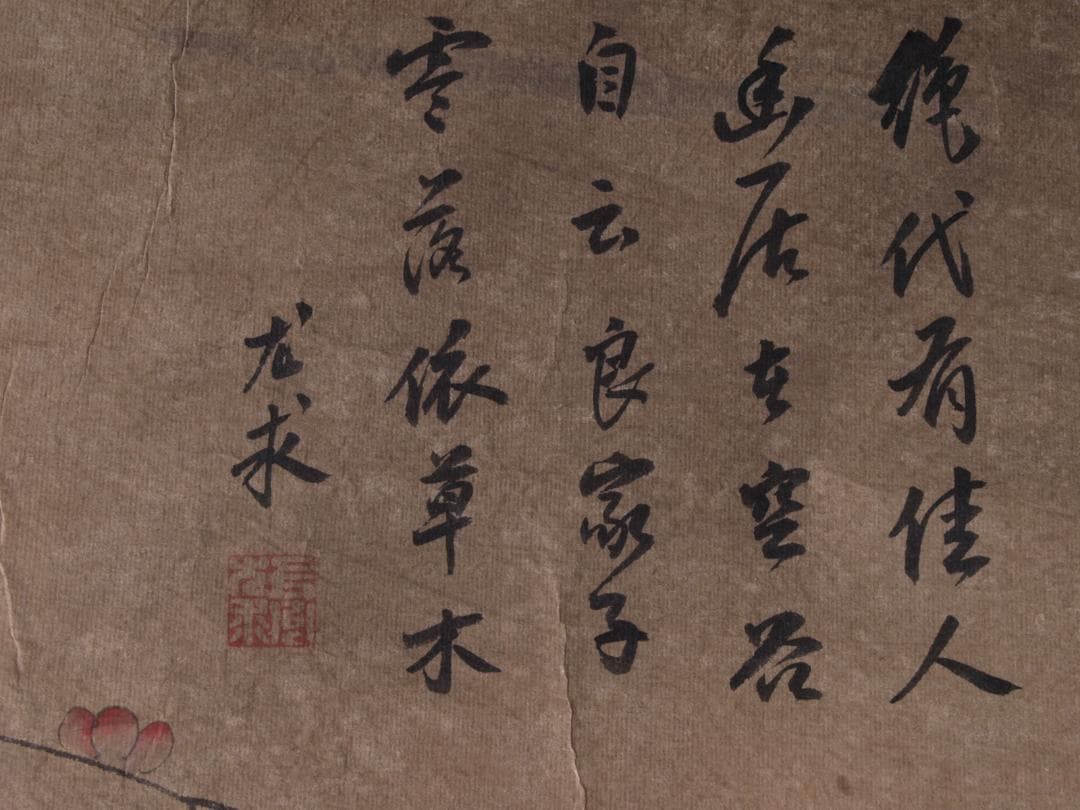 絶代有佳人
幽居在空谷
自云良家子
零落依草木
尤求